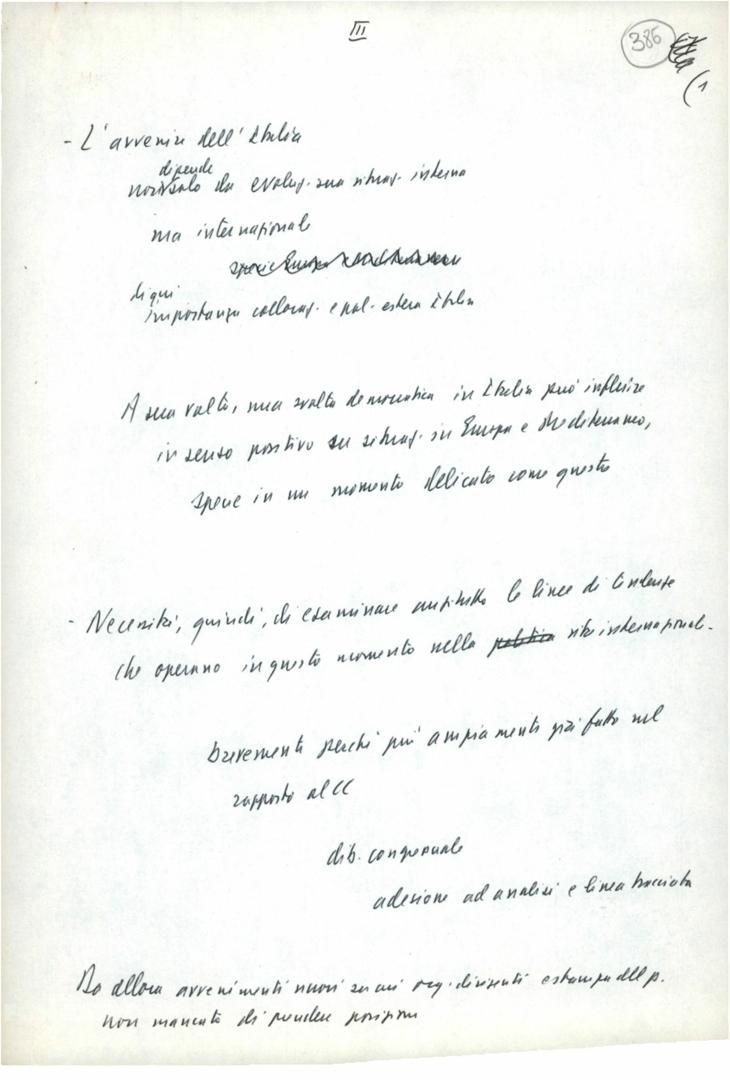 III
386
(1
- L'avvenire dell'Italia
dipende
non solo da evoluz. sua situaz. interna
ma internazionale
di qui
importanza collocaz. e pol. estera Italia
A sua volta, una svolta democratica in Italia può influire
in senso positivo su situaz. in Europa e Mediterraneo,
specie in un momento delicato come questo
- Necessità, quindi, di esaminare anzitutto le linee di tendenze
che operano in questo momento nella politica vita internazional.
brevemente perché più ampiamente già fatto nel
rapporto al CC
dib. congressuale
adesione ad analisi e linea tracciata
Da allora avvenimenti nuovi su cui org. dirigenti e stampa del p.
non mancato di prendere posizione